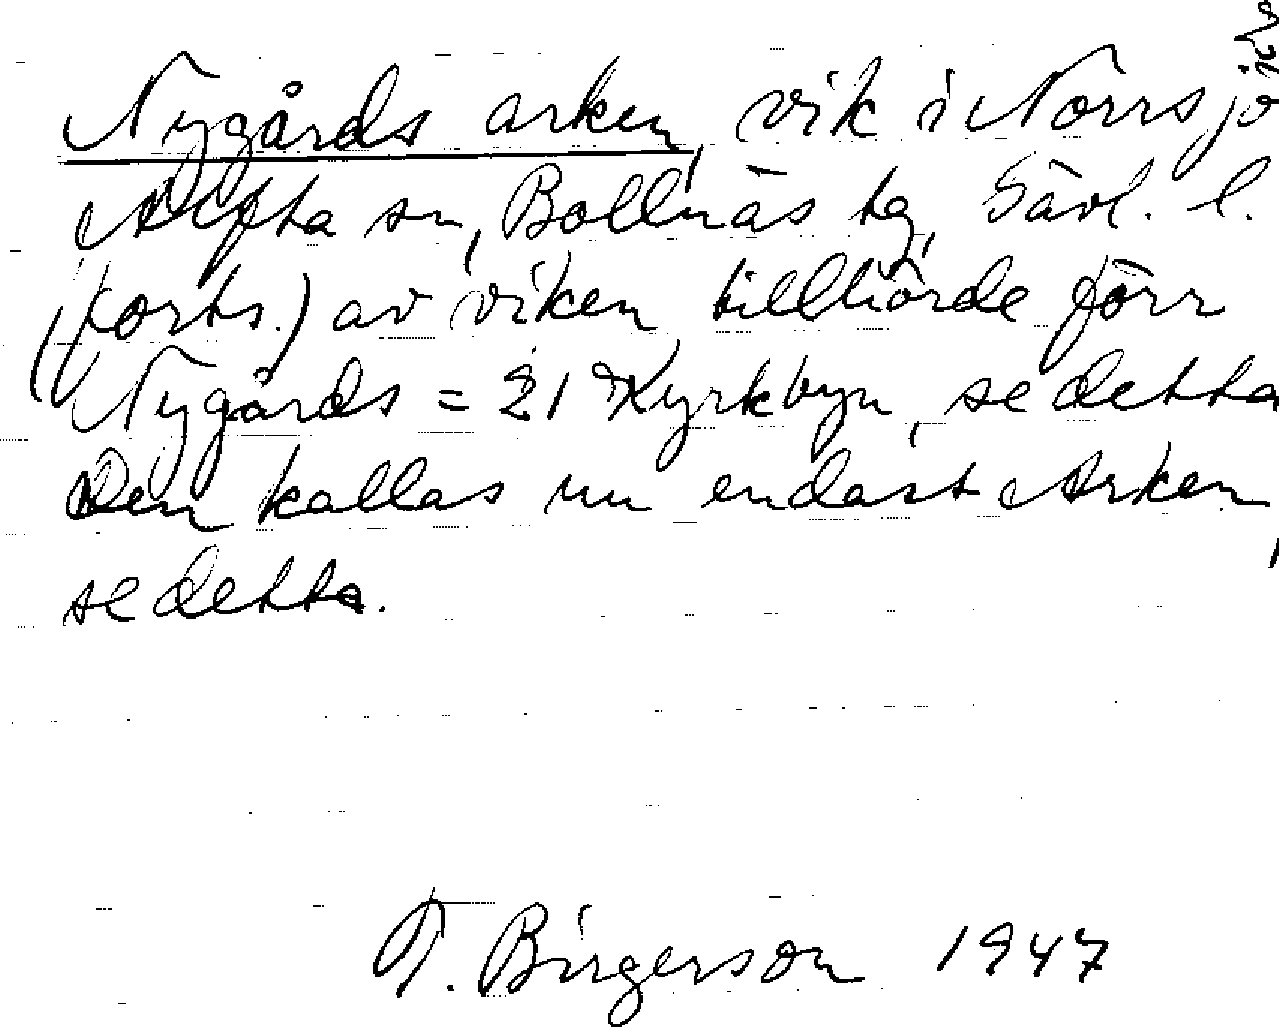 Nygårds arken, vik i Norrsjöks
Alfta sn, Bollnäs tg, Gävl. l.
(forts.) av viken tillhörde förr
Nygårds = 21 Kyrkbyn, se detta
Den kallas nu endast Arken,
se detta.
T. Birgerson 1947